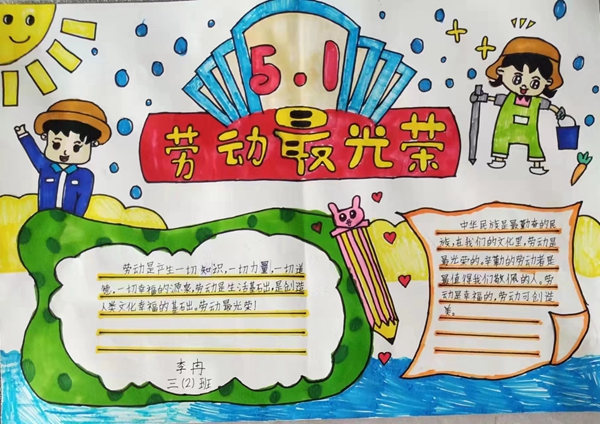 5.1
劳动最光荣
劳动是产生一切知识,一切力量,一切道
德,一切幸福的源泉,劳动是生活基石出,是创造
人类文化幸福的基石出,劳动最光荣!
李冉
三(2)班
中华民族是最勤幸的民
族,在我们的文化里,劳动是
最光荣的,辛勤的劳动者是
最值得我们敬佩的人,劳
动是幸福的,劳动可创造
美。